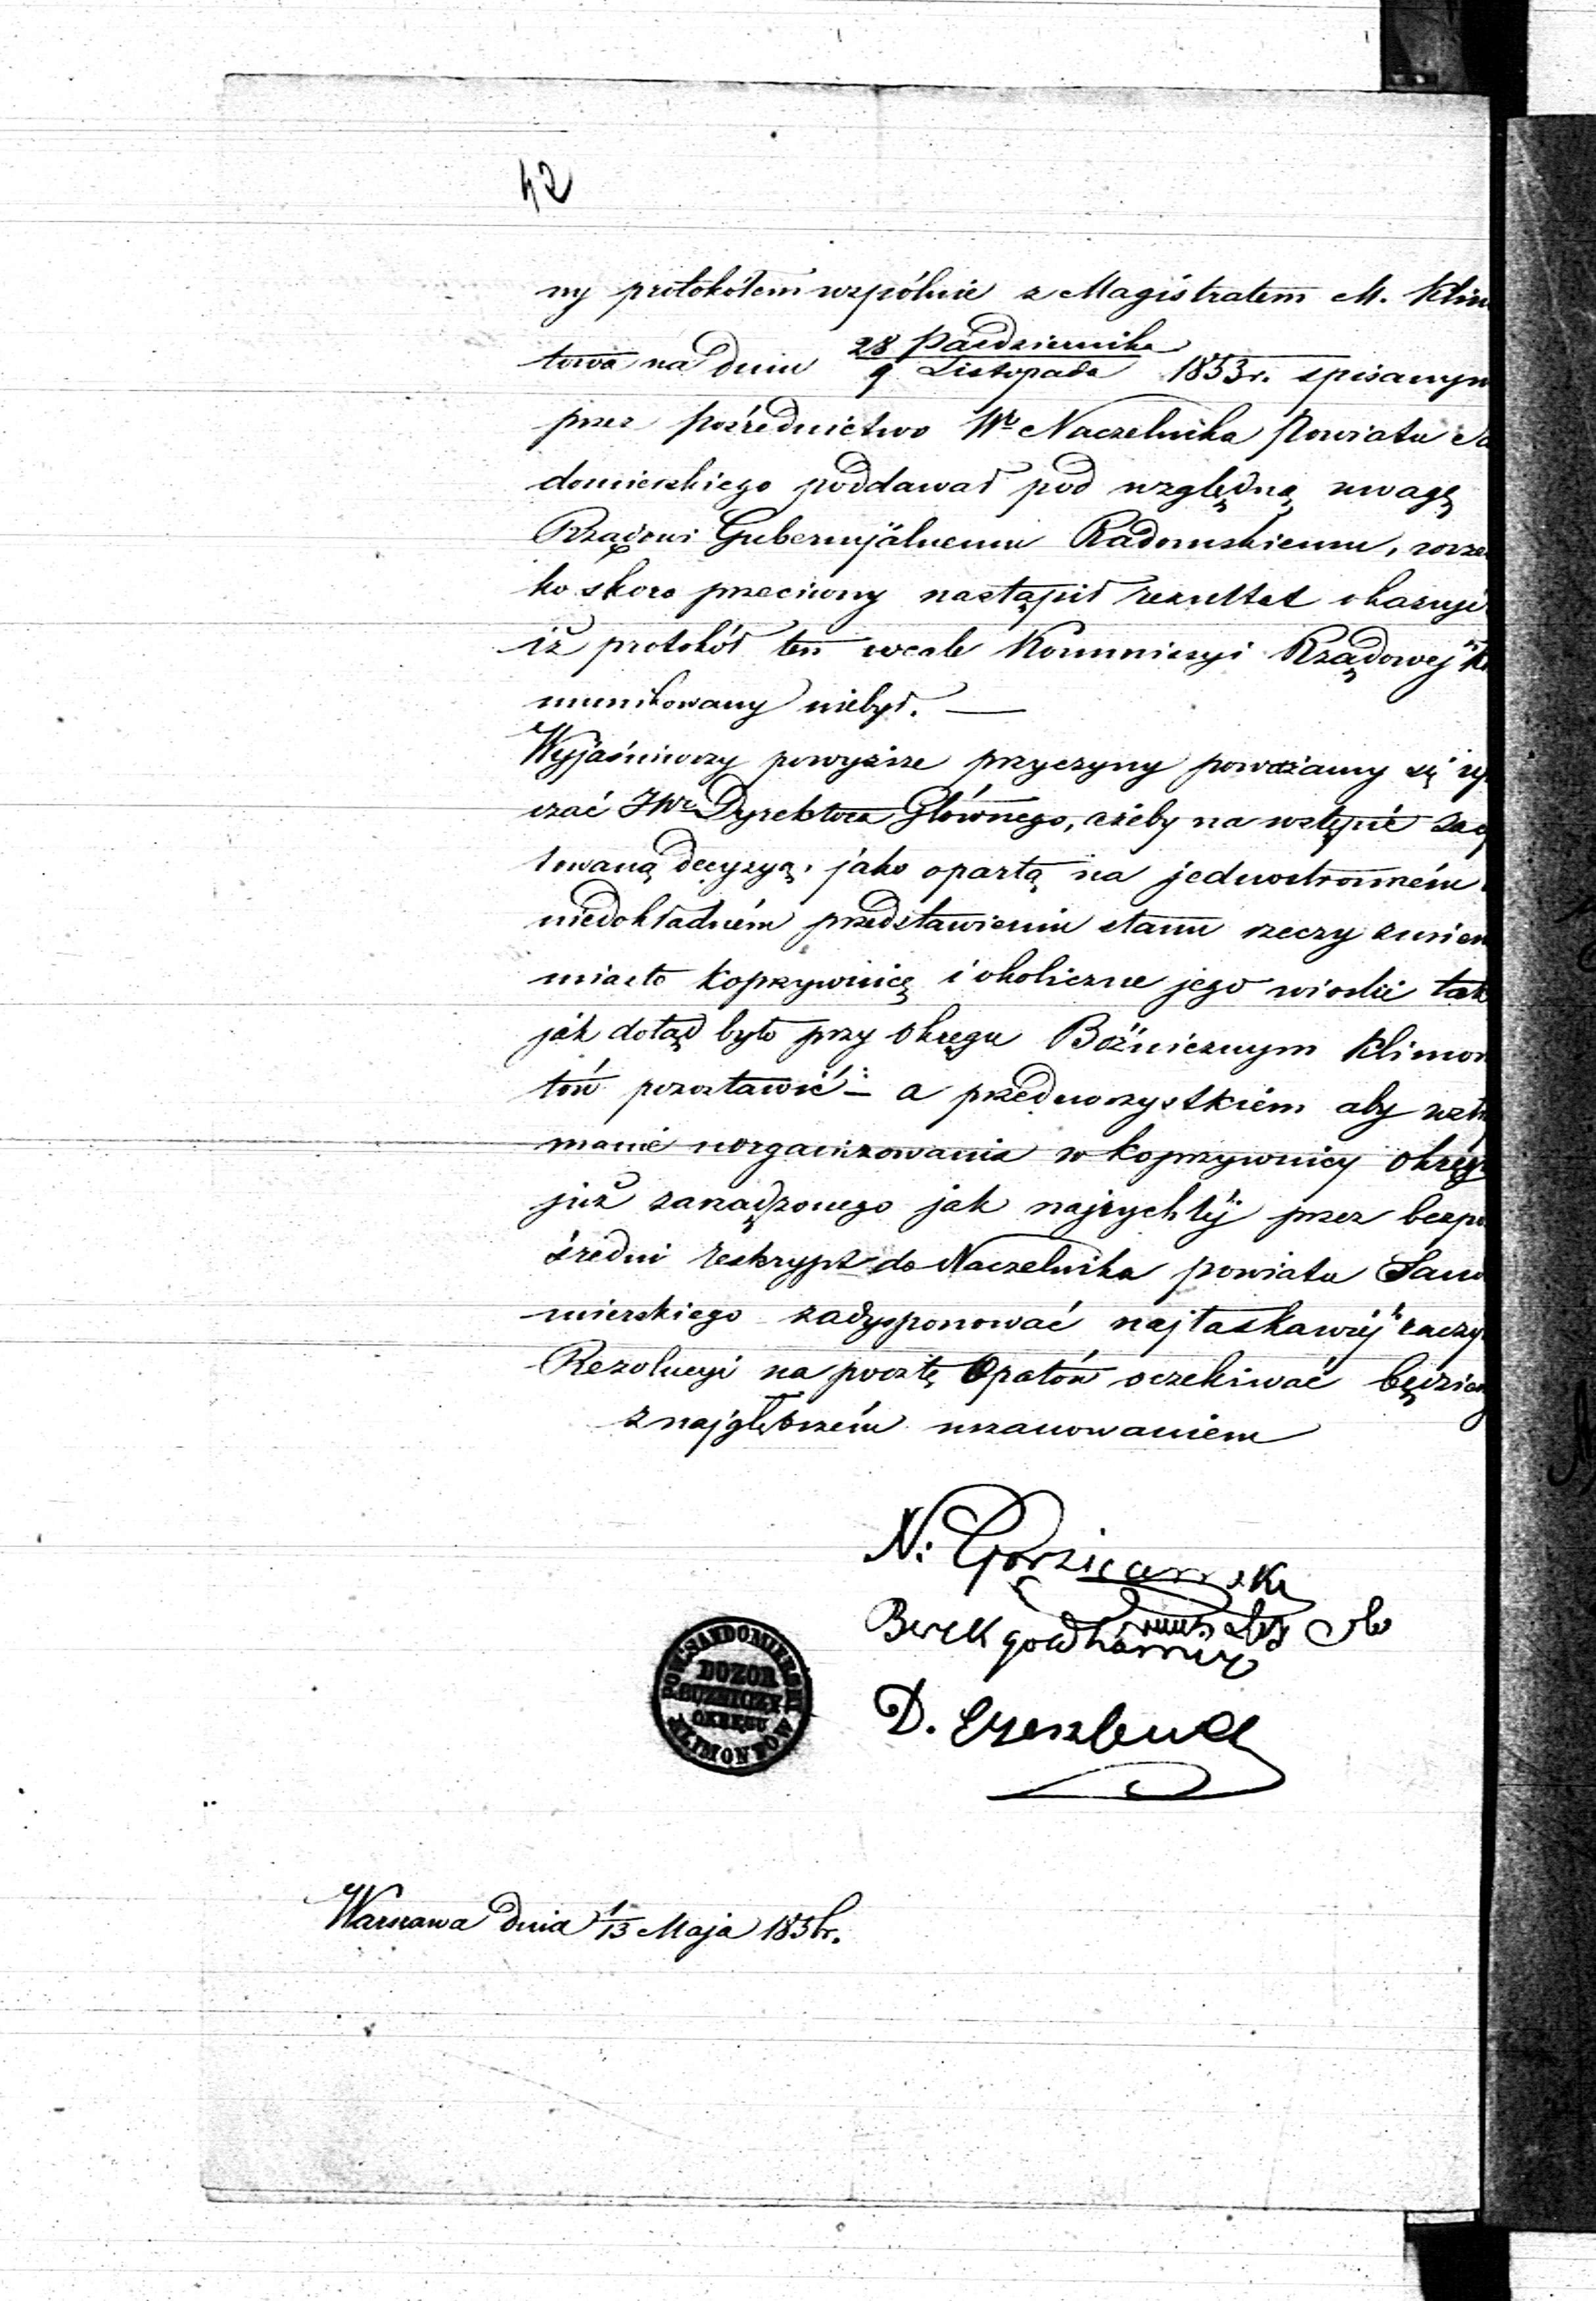 42
ny protokółem wspólnie z Magistratem M. Klim
towa na dniu 28 Października / 9 Listopada 1853 r. spisanym
przez pośrednictwo Wo Naczelnika Powiatu
domierskiego poddawał pod względną uwagę
Rządowi Gubernjalnemu Radomskiemu,
ko skoro przeciwny nastąpił rezultat okazuje
iż protokół ten wcale Kommissyi Rządowej
munikowany niebył. —
Wyjaśniwszy powyższe przyczyny poważamy się
czać JWo Dyrektora Głównego, ażeby na wstępie
towaną decyzyą, jako opartą na jednostronném
niedokładném przedstawieniu stanu rzeczy
miasto Koprzywnicę i okoliczne jego wioski tak
jak dotąd było przy Okręgu Bóżnicznym Klimon
tów pozostawić – a przedewszystkiem aby wstrzy
manie uorganizowania w Koprzywnicy Okręgu
już zarządzonego jak najrychléj przez bezpo
średni reskrypt do Naczelnika powiatu Sando
mierskiego zadysponować najłaskawiéj raczył
Rezolucyi na pocztę Opatów oczekiwać będziem
z najgłębszém uszanowaniem
N:
Berek
D.
POW. SANDOMIERSKI
DOZÓR
BÓŻNICZY
OKRĘGU
KLIMONTÓW
Warszawa dnia 1/13 Maja 185